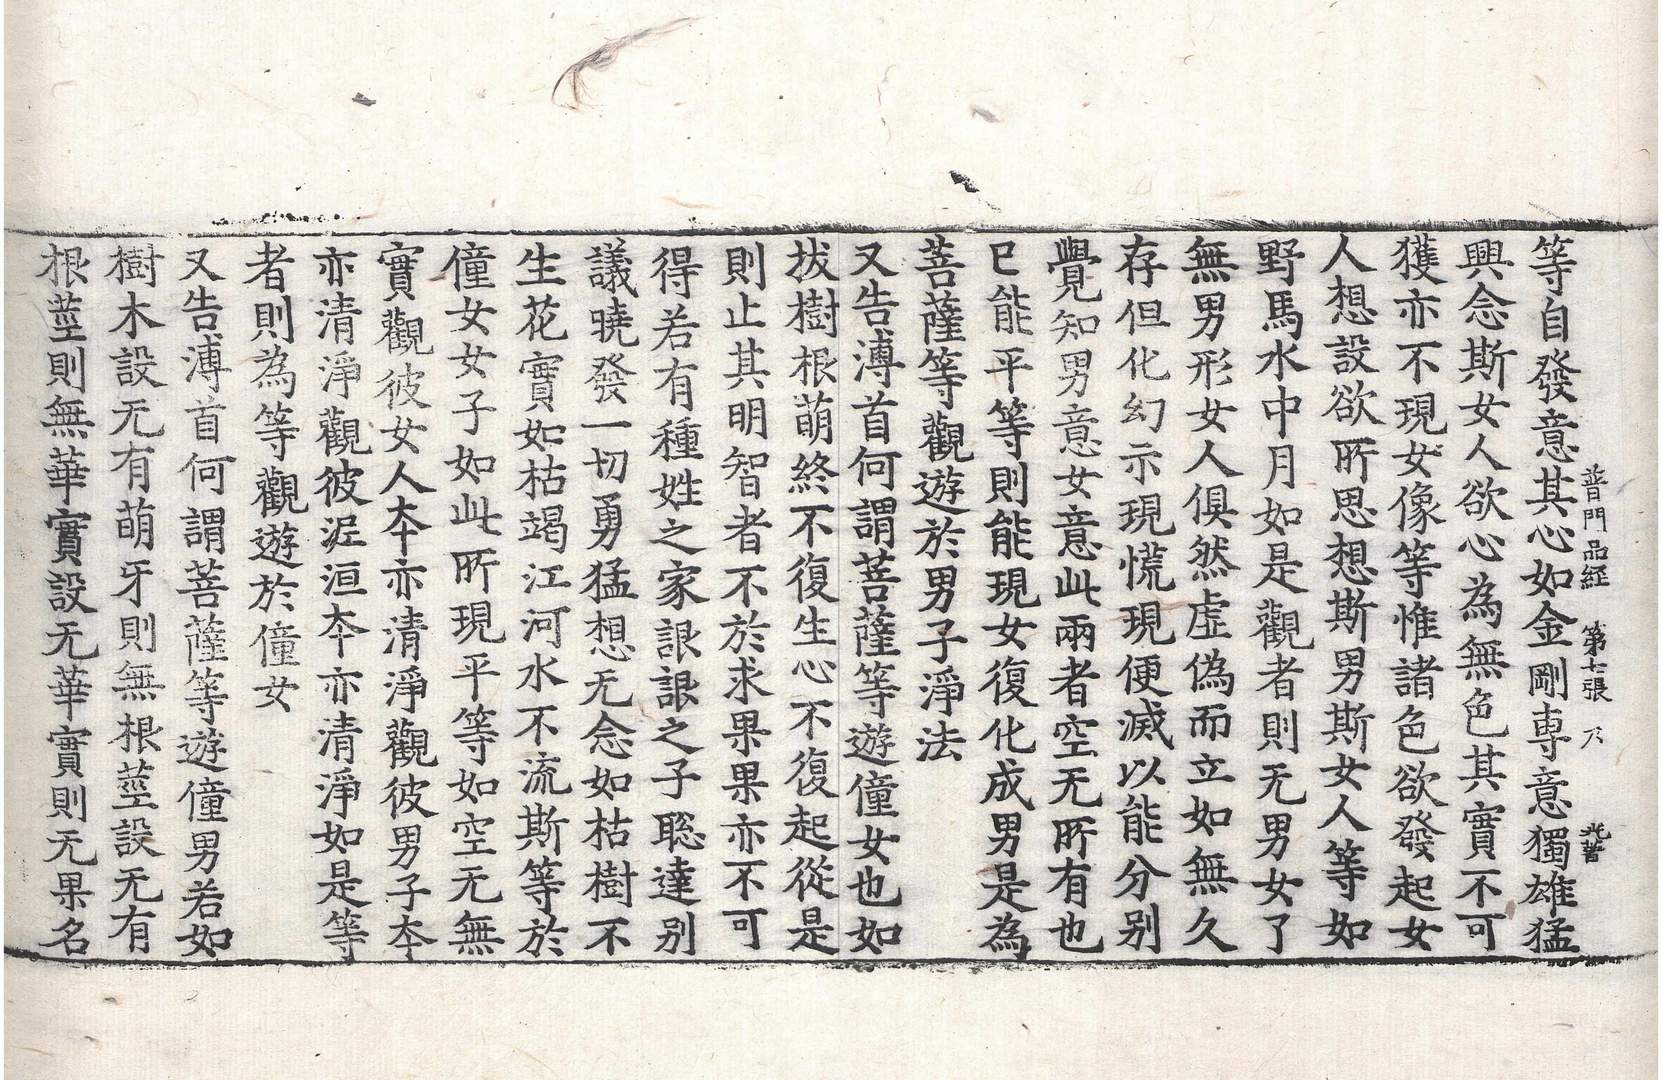 普門品経 第七張 乃
等自發意其心如金剛専意獨雄猛
興念斯女人欲心為無色其實不可
獲亦不現女像等惟諸色欲發起女
人想設欲所思想斯男斯女人等如
野馬水中月如是觀者則无男女了
無男形女人俱然虛偽而立如無久
存但化幻示現慌現便滅以能分別
覺知男意女意此兩者空无所有也
已能平等則能現女復化成男是為
菩薩等觀遊於男子淨法
又告溥首何謂菩薩等遊僮女也如
拔樹根萌終不復生心不復起從是
則止其明智者不於求果果亦不可
得若有種姓之家詪詪之子聡達別
議曉發一切勇猛想无念如枯樹不
生花實如枯竭江河水不流斯等於
僮女女子如此所現平等如空无無
實觀彼女人夲亦清淨觀彼男子夲
亦清淨觀彼泥洹夲亦清淨如是等
者則為等觀遊於僮女
又告溥首何謂菩薩等遊僮男若如
樹木設无有萌牙則無根莖設无有
根莖則無華實設无華實則无果名